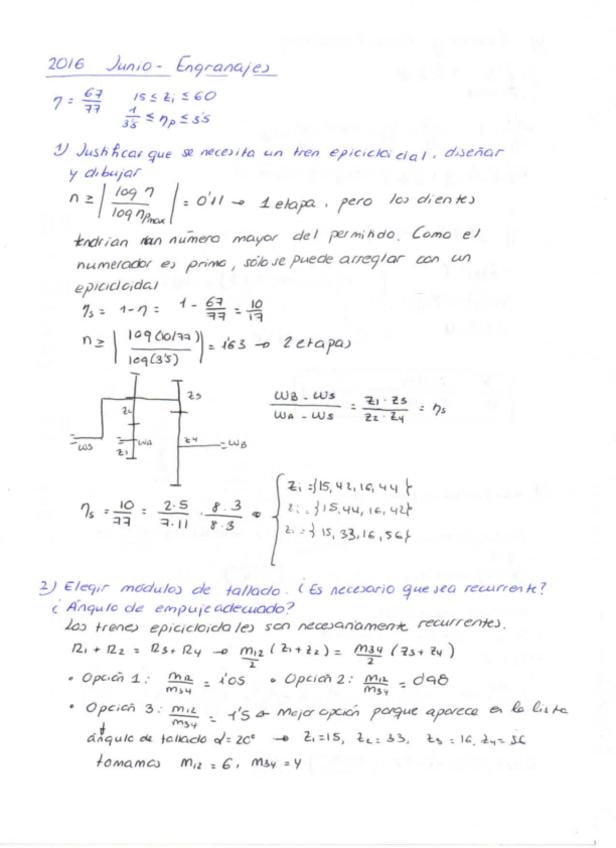 2016 Junio - Engranajes
η = 67/77 15 ≤ zi ≤ 60
1/3'5 ≤ ηp ≤ 3'5
1) Justificar que se necesita un tren epicicloicial, diseñar
y dibujar
n ≥ | log η / log ηpmax | = 0'11 → 1 etapa, pero los dientes
tendrían un número mayor del permitido. Como el
numerador es primo, sólo se puede arreglar con un
epicicloidal
ηs = 1-η = 1 - 67/77 = 10/17
n ≥ | log(10/77) / log(3'5) | = 1'63 → 2 etapas
z2 z3
ωB - ωS / ωA - ωS = z1 · z3 / z2 · z4 = ηs
ωS ωA z1 z4 ωB
ηs = 10/77 = 2·5/7·11 · 8·3/8·3
zi = {15, 42, 16, 44}
zi = {15, 44, 16, 42}
zi = {15, 33, 16, 56}
2) Elegir módulos de tallado. ¿Es necesario que sea recurrente?
¿Ángulo de empuje adecuado?
Los trenes epicicloidales son necesariamente recurrentes.
R1 + R2 = R3 + R4 → m12/2 (z1 + z2) = m34/2 (z3 + z4)
• Opción 1: m12/m34 = 1'05 • Opción 2: m12/m34 = 0'98
• Opción 3: m12/m34 = 1'5 ← Mejor opción porque aparece en la lista
ángulo de tallado α = 20° → z1 = 15, z2 = 33, z3 = 16, z4 = 56
tomamos m12 = 6, m34 = 4